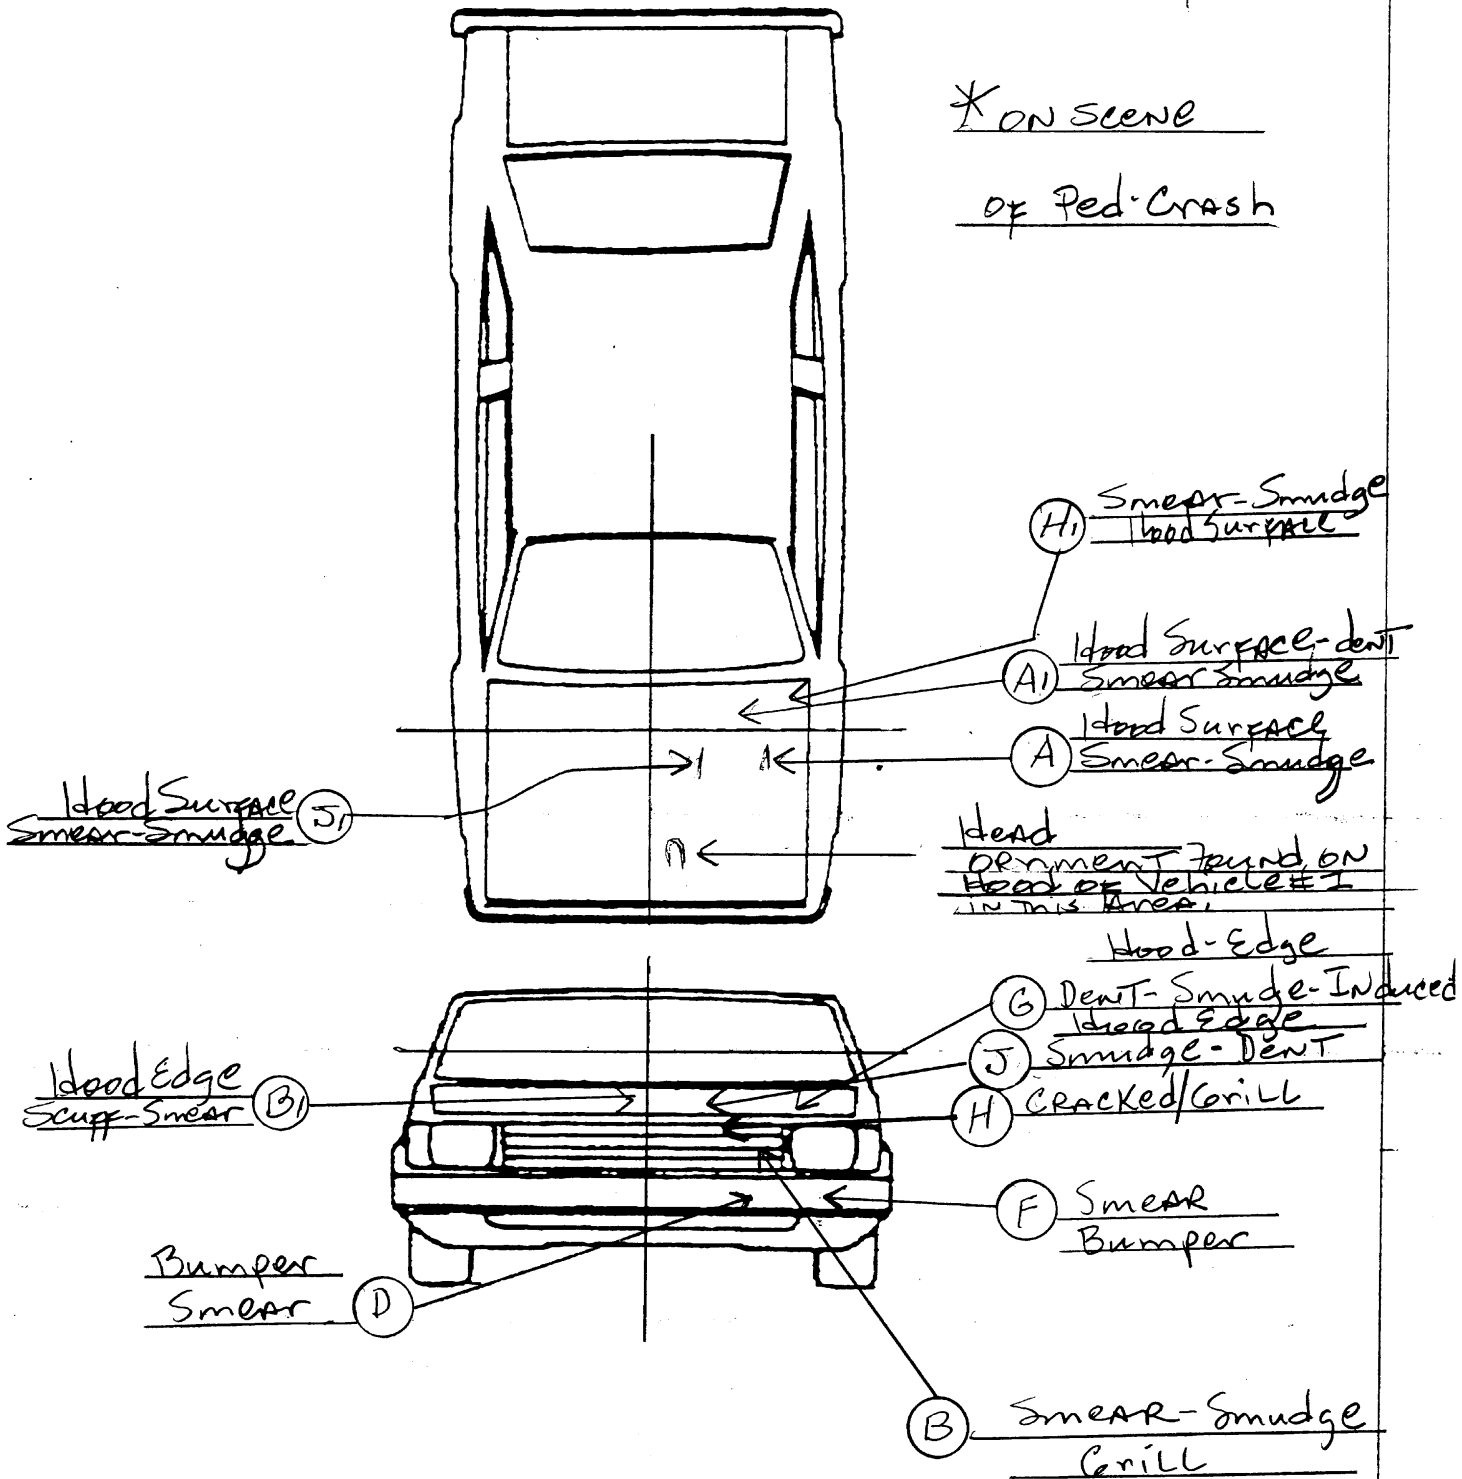 * ON SCENE
OF Ped-Crash
H1 Smear-Smudge
Hood Surface
A1 Hood Surface-dent
Smear Smudge
A Hood Surface
Smear-Smudge
Hood Surface
Smear-Smudge J1
Head
ORNMENT Found ON
Hood OF Vehicle #1
IN THIS AREA.
Hood-Edge
G DenT-Smude-INduced
Hood Edge
J Smudge-DenT
Hood Edge
Scuff-Smear B1
H CRACKed/Grill
F SmeAR
Bumper
Bumper
Smear D
B SmeAR-Smudge
GriLL